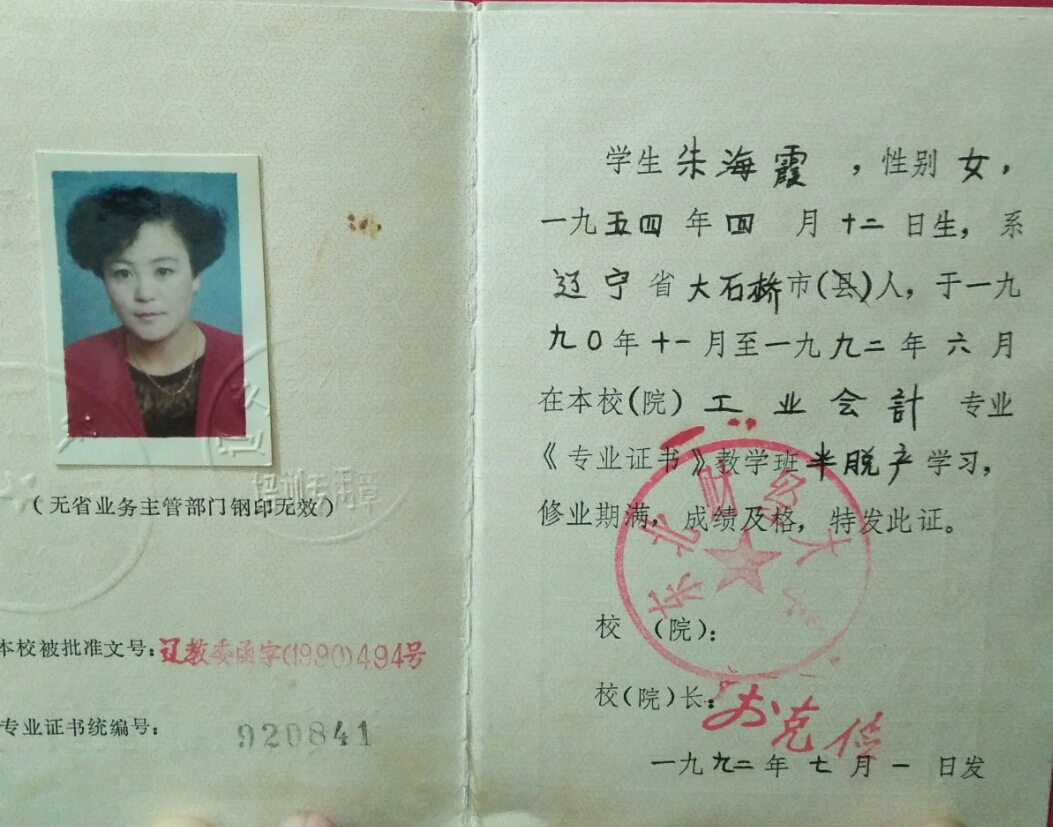 (无省业务主管部门钢印无效)
培训专用章
本校被批准文号:辽教委函字(1990)494号
专业证书统编号:
920841
学生朱海霞,性别女,
一九五四年四月十二日生,系
辽宁省大石桥市(县)人,于一九
九0年十一月至一九九二年六月
在本校(院)工业会計专业
《专业证书》教学班半脱产学习,
修业期满,成绩及格,特发此证。
东北财经大学
校(院):
校(院)长:
一九九二年七月一日发